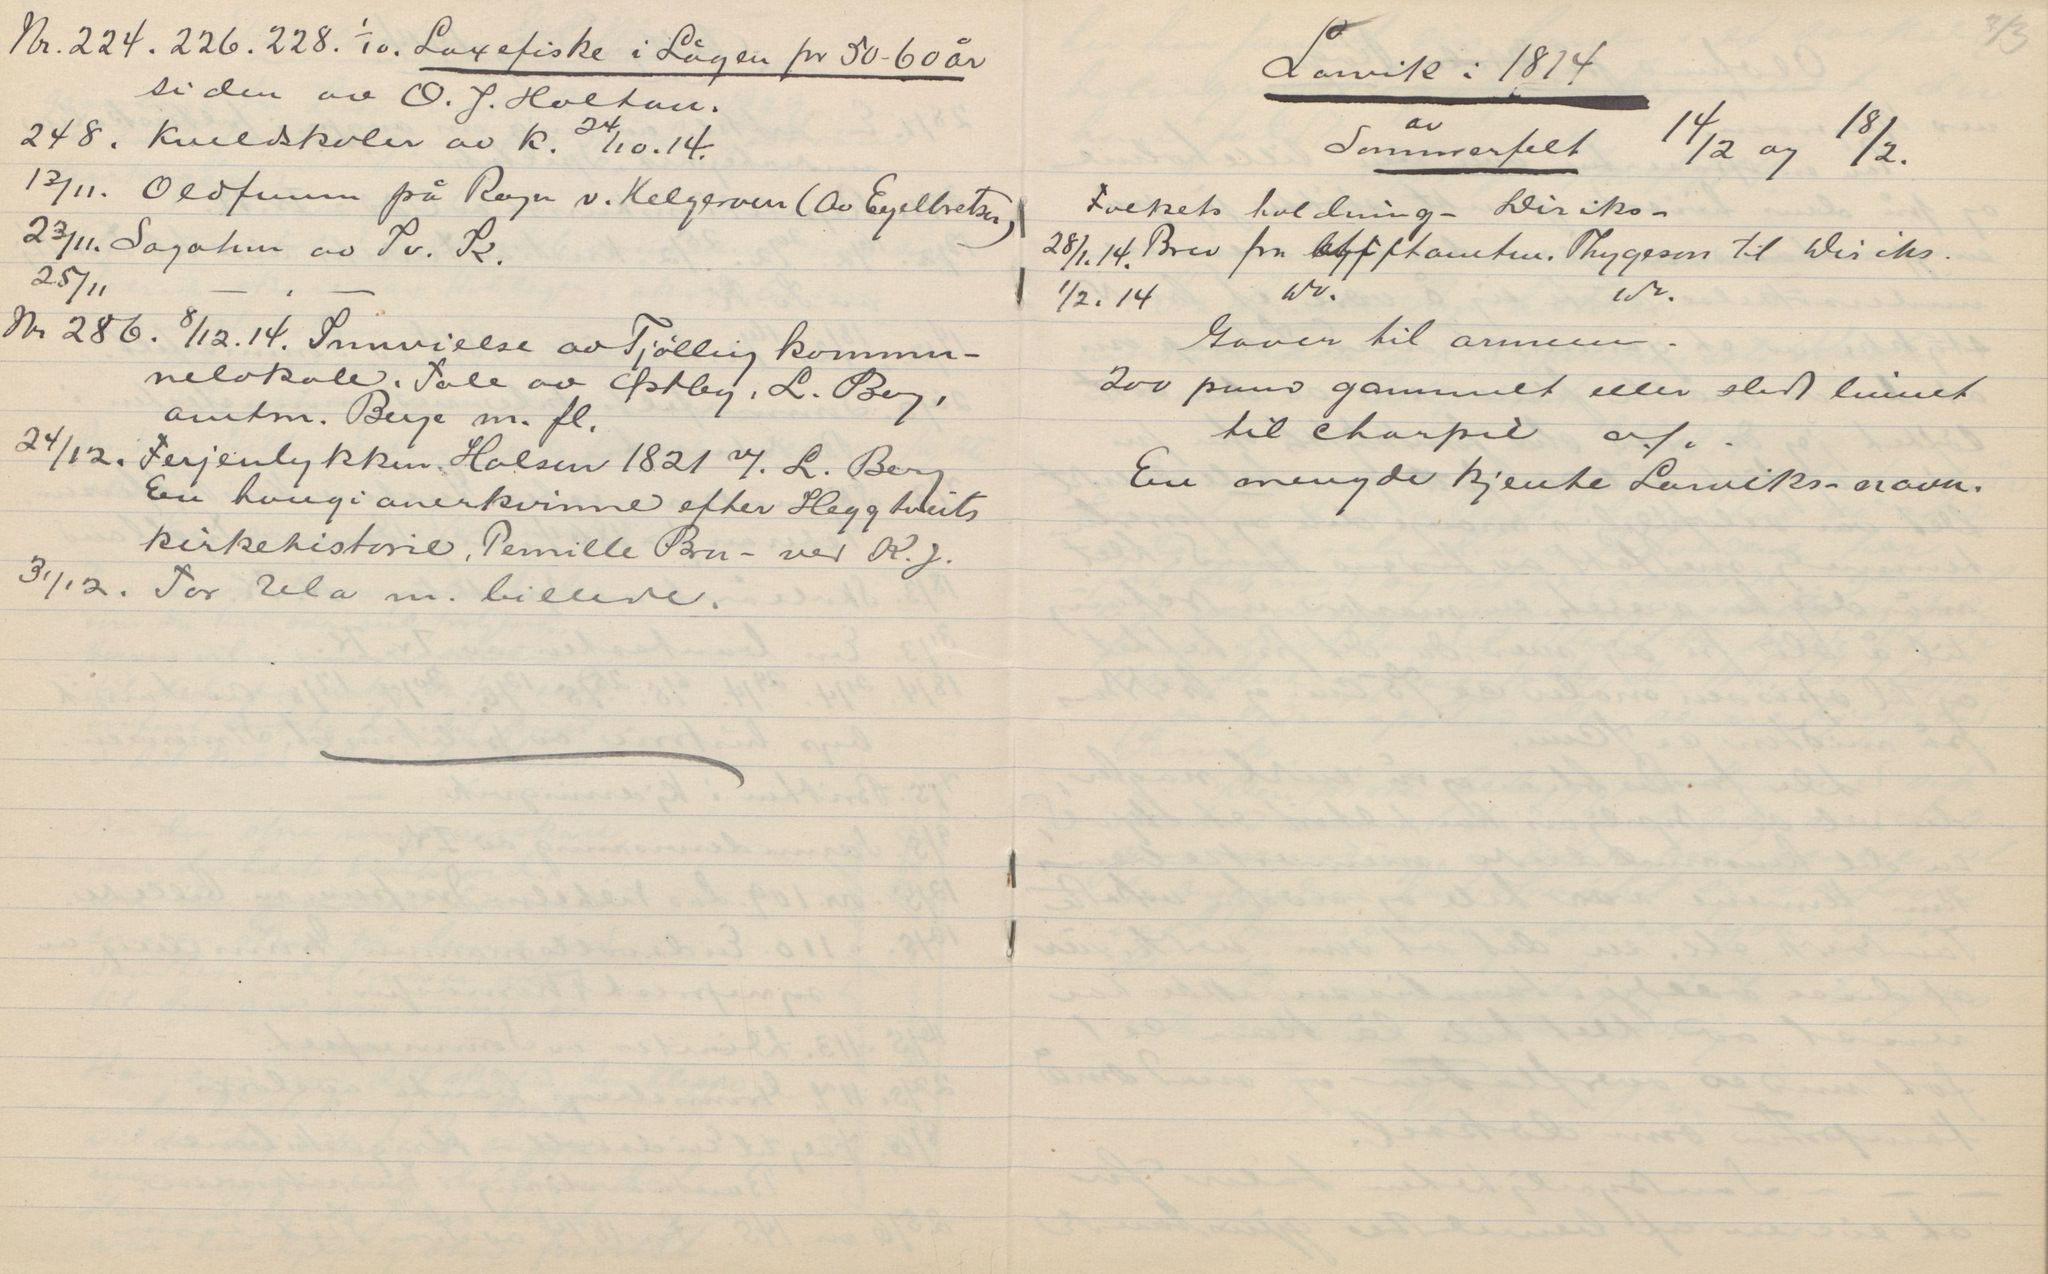 Nr. 224. 226. 228. 1/10. Laxefiske i Lågen for 50-60 år
siden av O. J. Holtan.
248. Kveldskoler av K. 24/10.14.
13/11. Oldfunn på Røysi v. Helgeroen (av Engelbretsen)
23/11. Sagatun av Tv. K.
25/11 — " —
Nr 286. 8/12.14. Innvielse av Tjølling kommu-
nelokale. Tale av Østby, L. Berg,
amtm. Berg m. fl.
24/12. Ferjeulykken Halsen 1821 v/. L. Berg
En haugianerkvinne efter Heggtveits
kirkehistorie. Pernille Bru- ved K. J.
31/12. Tor Ula m. billede.
2/3
Larvik i 1814
av
Sommerfelt 14/2 og 18/2.
Folkets holdning - Wiriks -
28/1.14. Brev fra stiftamtm. Thygeson til Wiriks.
1/2. 14 do. do.
Gaver til armeen -
200 pund gammelt eller slidt linnet
til charpie o.s.v.
En mengde kjente Larviks-navn.